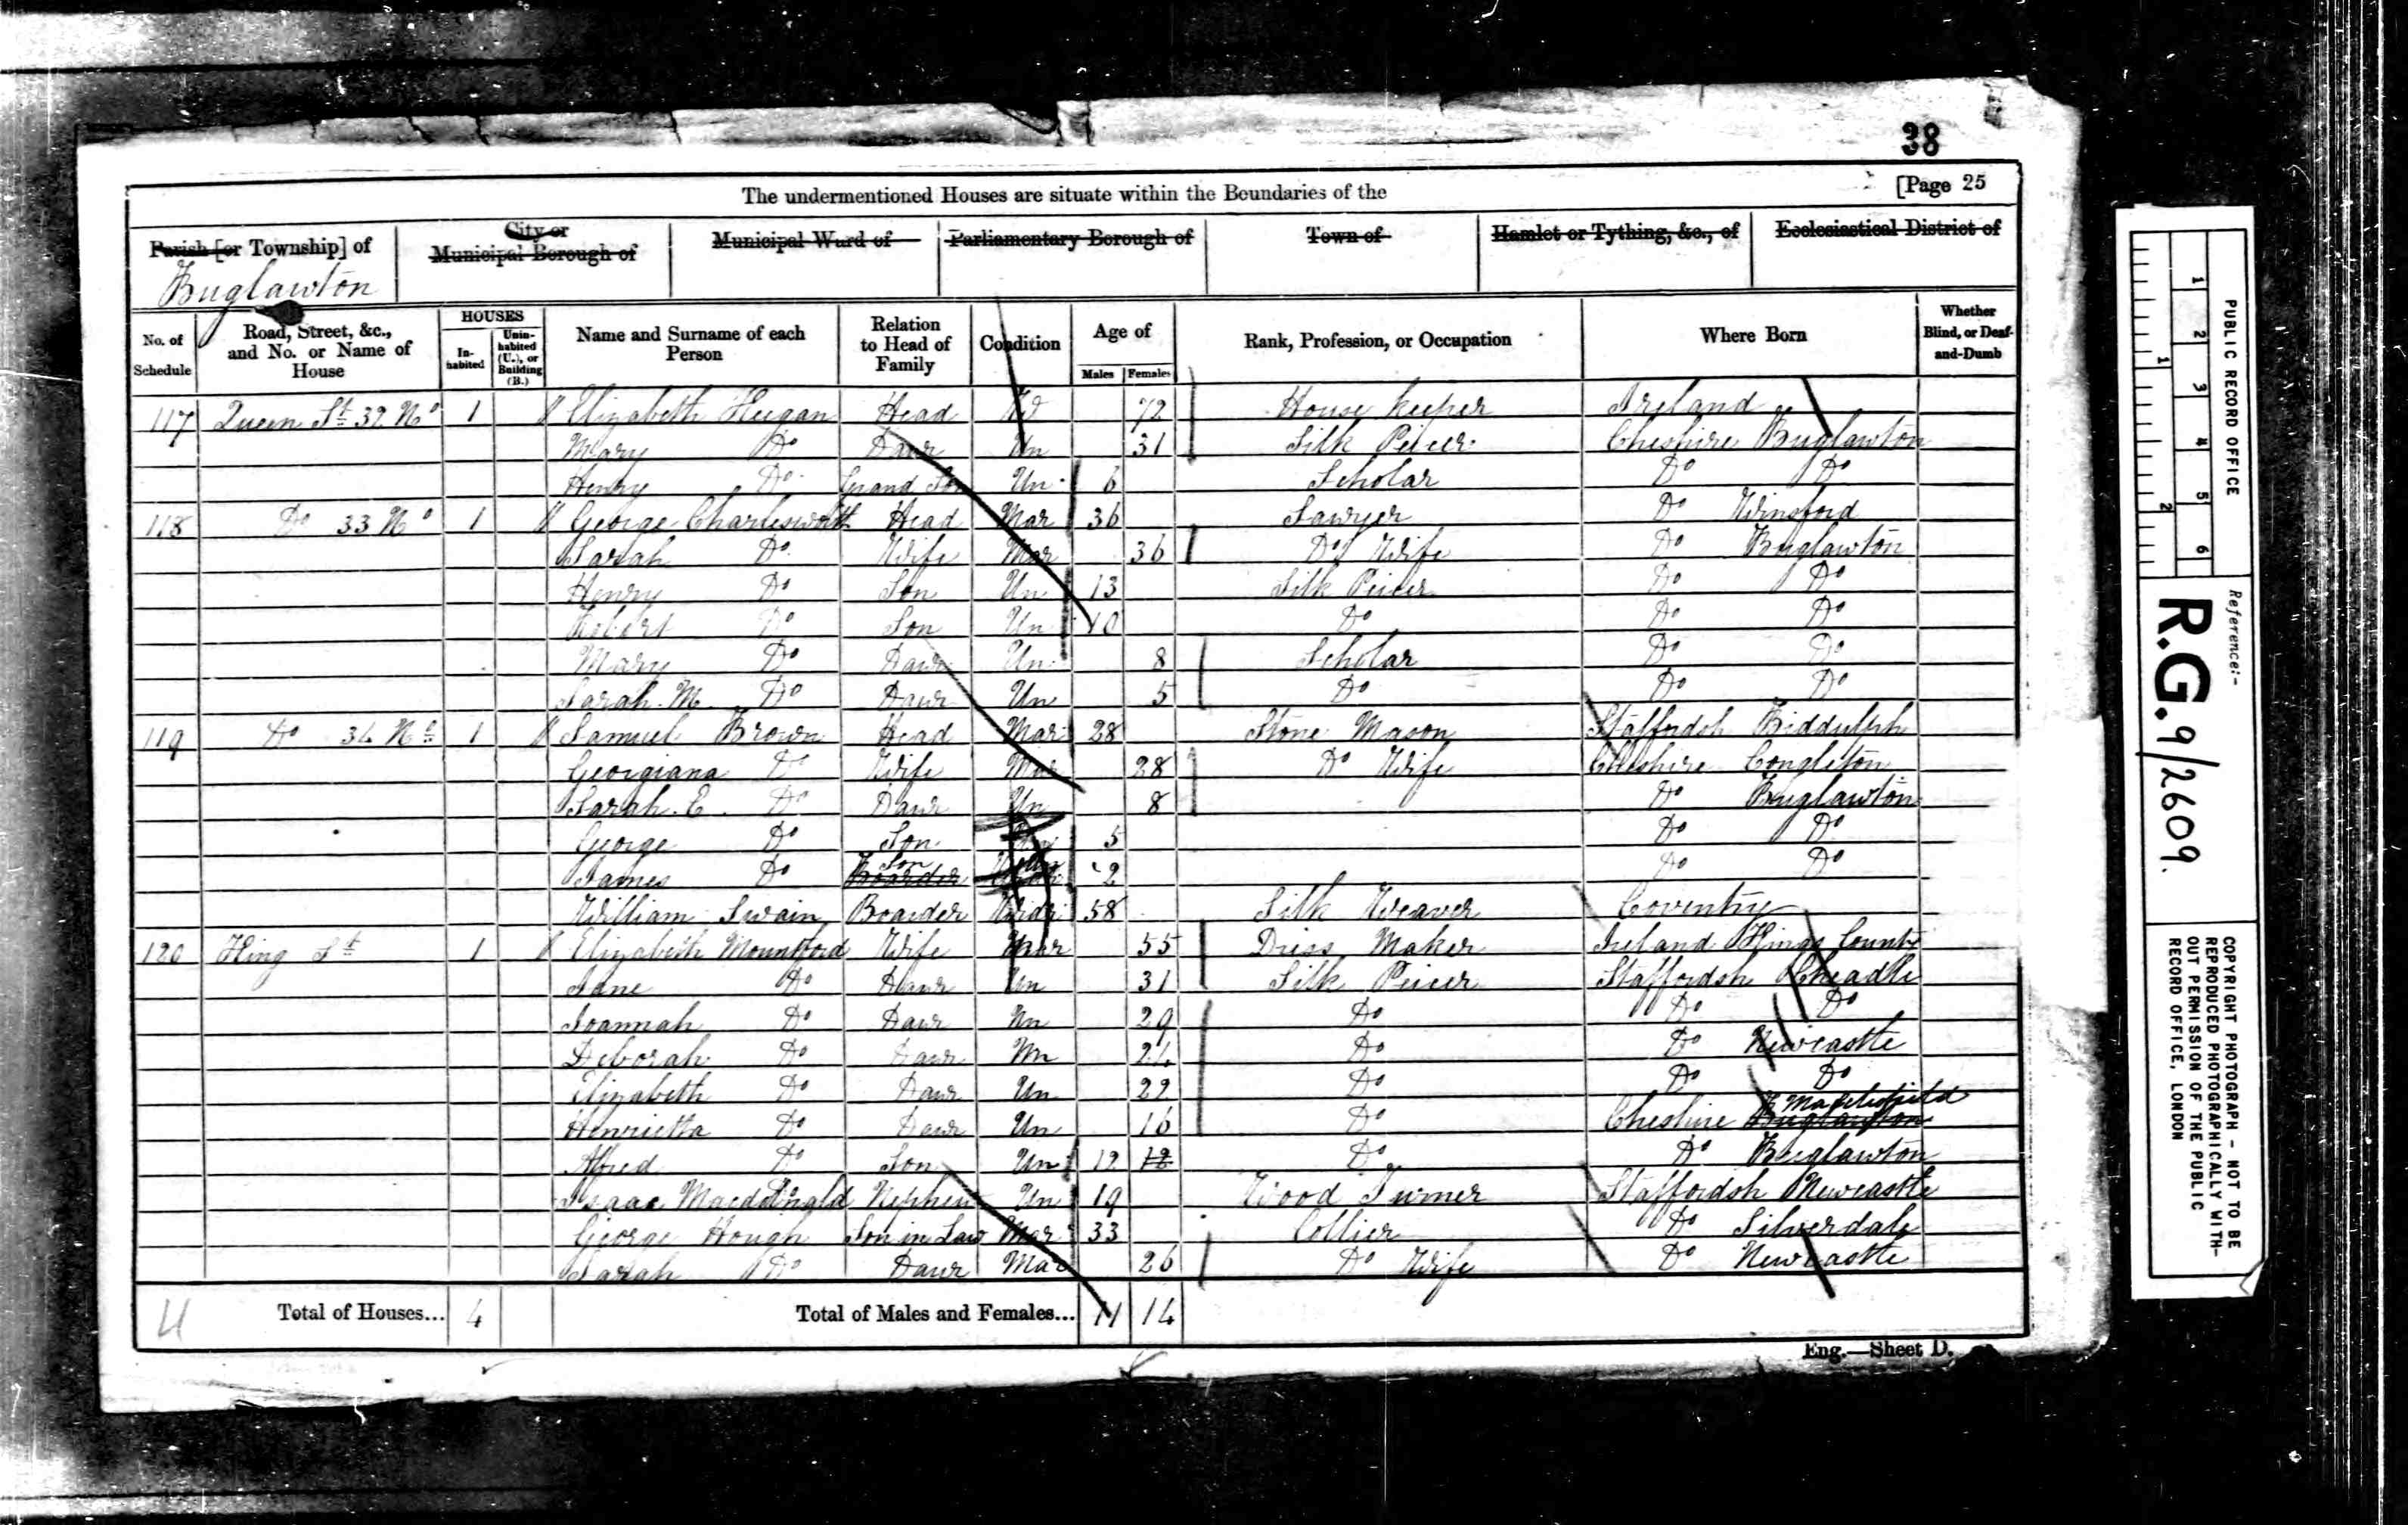 38
The undermentioned Houses are situate within the Boundaries of the [Page 25
Parish [or Township] of City or Municipal Borough of Municipal Ward of Parliamentary Borough of Town of Hamlet or Tything, &c., of Ecclesiastical District of
Buglawton
No. of Schedule Road, Street, &c., and No. or Name of House HOUSES Inhabited Uninhabited (U.), or Building (B.) Name and Surname of each Person Relation to Head of Family Condition Age of Males Females Rank, Profession, or Occupation Where Born Whether Blind, or Deaf-and-Dumb
117 Queen St 32 No 1 Elizabeth Head W 72 House Keeper Ireland
Mary Do Daur Un 31 Silk Peicer Cheshire Buglawton
Henry Do Grand Son Un 6 Scholar Do Do
118 Do 33 No 1 George Charlesworth Head Mar 36 Sawyer Do Winsford
Sarah Do Wife Mar 36 Do Wife Do Buglawton
Henry Do Son Un 13 Silk Peicer Do Do
Robert Do Son Un 10 Do Do Do
Mary Do Daur Un 8 Scholar Do Do
Sarah M. Do Daur Un 5 Do Do Do
119 Do 34 No 1 Samuel Brown Head Mar 28 Stone Mason Staffordsh Biddulph
Georgiana Do Wife Mar 28 Do Wife Cheshire Congleton
Sarah E. Do Daur Un 8 Do Buglawton
George Do Son 5 Do Do
James Do Boarder Son 2 Do Do
William Swain Boarder Widr 58 Silk Weaver Coventry
120 King St 1 Elizabeth Mountford Wife Mar 55 Dress Maker Ireland Kings County
Jane Do Daur Un 31 Silk Peicer Staffordsh Cheadle
Joannah Do Daur Un 29 Do Do Do
Deborah Do Daur Un 24 Do Do Newcastle
Elizabeth Do Daur Un 22 Do Do Do
Henrietta Do Daur Un 16 Do Cheshire Buglawton Macclesfield
Alfred Do Son Un 12 12 Do Do Buglawton
Isaac Macdonald Nephew Un 19 Wood Turner Staffordsh Newcastle
George Hough Son in Law Mar 33 Collier Do Silverdale
Sarah Do Daur Mar 26 Do Wife Do Newcastle
4 Total of Houses... 4 Total of Males and Females... 11 14
Eng.—Sheet D.
PUBLIC RECORD OFFICE
1 2 3 4 5 6
1 2
Reference:-
R.G. 9/2609
COPYRIGHT PHOTOGRAPH - NOT TO BE
REPRODUCED PHOTOGRAPHICALLY WITH-
OUT PERMISSION OF THE PUBLIC
RECORD OFFICE, LONDON